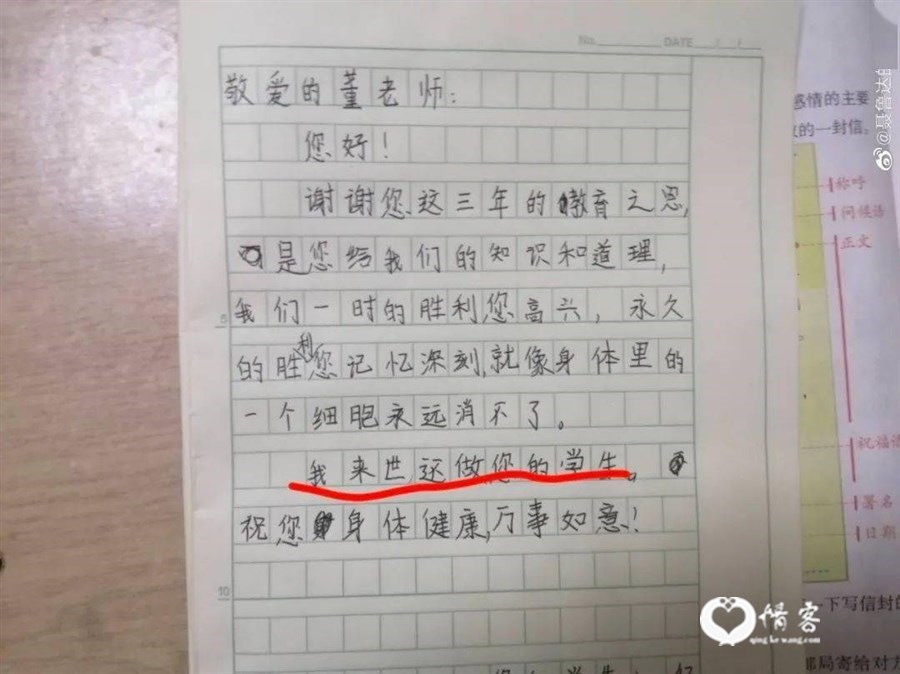 No. DATE / /
敬爱的董老师:
您好!
谢谢您这三年的教育之恩,
是您给我们的知识和道理,
我们一时的胜利您高兴,永久
的胜利您记忆深刻,就像身体里的
一个细胞永远消不了。
我来世还做您的学生。
祝您身体健康,万事如意!
5
10
感情的主要
的一封信。
称呼
问候语
正文
祝福语
署名
日期
一下写信封的
邮局寄给对方
@聂鲁达的
情客
qingkewang.com